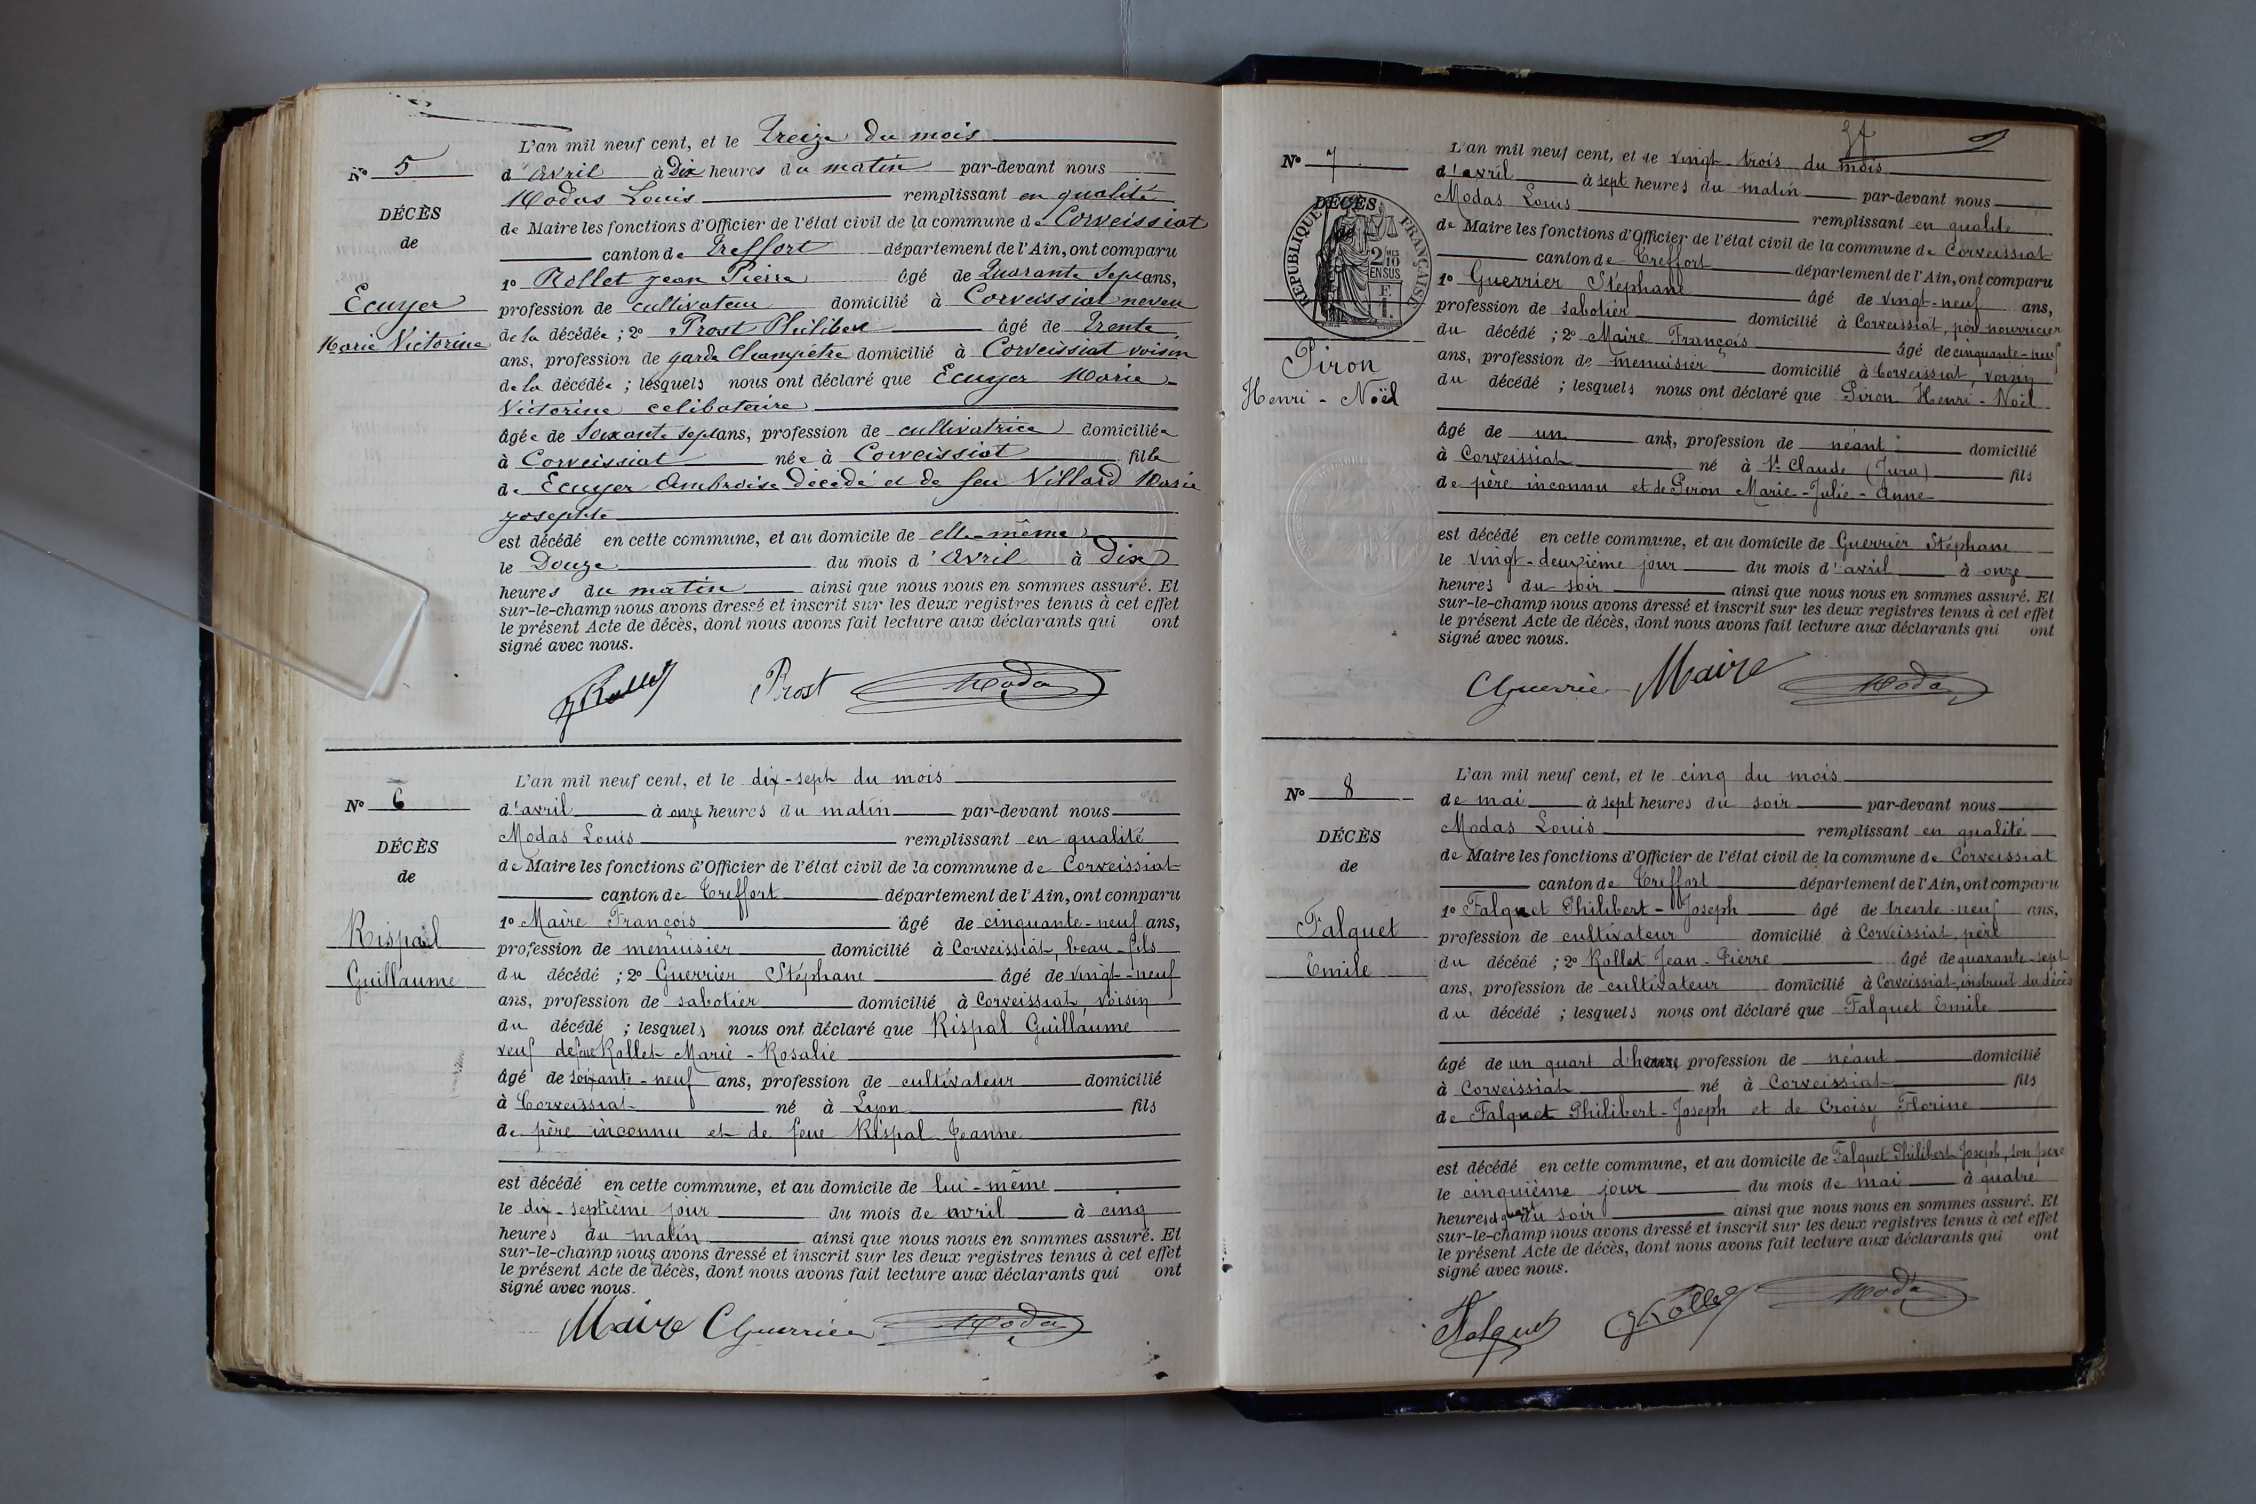 L'an mil neuf cent, et le Treize du mois
N° 5
d'Avril à Dix heures du matin par-devant nous
Modas Louis remplissant en qualité
DÉCÈS
de Maire les fonctions d'Officier de l'état civil de la commune de Corveissiat
de
canton de Treffort département de l'Ain, ont comparu
1° Rollet Jean Pierre âgé de Quarante Sept ans,
Ecuyer
profession de cultivateur domicilié à Corveissiat neveu
Marie Victorine
de la décédée ; 2° Prost Philibert âgé de Trente
ans, profession de garde Champêtre domicilié à Corveissiat voisin
de la décédée ; lesquels nous ont déclaré que Ecuyer Marie
Victorine celibataire
âgée de Soixante sept ans, profession de cultivatrice domiciliée
à Corveissiat née à Corveissiat fille
de Ecuyer Ambroise décédé et de feu Villard Marie
Josephte
est décédé en cette commune, et au domicile de elle-même
le Douze du mois d'Avril à dix
heures du matin ainsi que nous nous en sommes assuré. Et
sur-le-champ nous avons dressé et inscrit sur les deux registres tenus à cet effet
le présent Acte de décès, dont nous avons fait lecture aux déclarants qui ont
signé avec nous.
JRollet Prost Modas
L'an mil neuf cent, et le dix-sept du mois
N° 6
d'avril à onze heures du matin par-devant nous
Modas Louis remplissant en qualité
DÉCÈS
de Maire les fonctions d'Officier de l'état civil de la commune de Corveissiat
de
canton de Treffort département de l'Ain, ont comparu
1° Maire François âgé de cinquante-neuf ans,
Rispal
profession de menuisier domicilié à Corveissiat, beau-fils
Guillaume
du décédé ; 2° Guerrier Stéphane âgé de vingt-neuf
ans, profession de sabotier domicilié à Corveissiat, voisin
du décédé ; lesquels nous ont déclaré que Rispal Guillaume
veuf de feue Rollet Marie-Rosalie
âgé de soixante-neuf ans, profession de cultivateur domicilié
à Corveissiat né à Lyon fils
de père inconnu et de feue Rispal Jeanne
est décédé en cette commune, et au domicile de lui-même
le dix-septième jour du mois de avril à cinq
heures du matin ainsi que nous nous en sommes assuré. Et
sur-le-champ nous avons dressé et inscrit sur les deux registres tenus à cet effet
le présent Acte de décès, dont nous avons fait lecture aux déclarants qui ont
signé avec nous.
Maire Guerrier Modas
L'an mil neuf cent, et le vingt-trois du mois
N° 7
d'avril à sept heures du matin par-devant nous
DÉCÈS
Modas Louis remplissant en qualité
RÉPUBLIQUE FRANÇAISE
2/10 EN SUS
F. 1.
de Maire les fonctions d'Officier de l'état civil de la commune de Corveissiat
canton de Treffort département de l'Ain, ont comparu
1° Guerrier Stéphane âgé de vingt-neuf ans,
profession de sabotier domicilié à Corveissiat, père nourricier
du décédé ; 2° Maire François âgé de cinquante-neuf
Piron
ans, profession de menuisier domicilié à Corveissiat, voisin
Henri-Noël
du décédé ; lesquels nous ont déclaré que Piron Henri-Noël
âgé de un ans, profession de néant domicilié
à Corveissiat né à St Claude (Jura) fils
de père inconnu et de Piron Marie-Julie-Anne
est décédé en cette commune, et au domicile de Guerrier Stéphane
le vingt-deuxième jour du mois d'avril à onze
heures du soir ainsi que nous nous en sommes assuré. Et
sur-le-champ nous avons dressé et inscrit sur les deux registres tenus à cet effet
le présent Acte de décès, dont nous avons fait lecture aux déclarants qui ont
signé avec nous.
Guerrier Maire Modas
L'an mil neuf cent, et le cinq du mois
N° 8
de mai à sept heures du soir par-devant nous
Modas Louis remplissant en qualité
DÉCÈS
de Maire les fonctions d'Officier de l'état civil de la commune de Corveissiat
de
canton de Treffort département de l'Ain, ont comparu
1° Falquet Philibert-Joseph âgé de trente-neuf ans,
Falquet
profession de cultivateur domicilié à Corveissiat, père
Emile
du décédé ; 2° Rollet Jean-Pierre âgé de quarante-sept
ans, profession de cultivateur domicilié à Corveissiat, instruit du décès
du décédé ; lesquels nous ont déclaré que Falquet Emile
âgé de un quart d'heure, profession de néant domicilié
à Corveissiat né à Corveissiat fils
de Falquet Philibert-Joseph et de Croisy Florine
est décédé en cette commune, et au domicile de Falquet Philibert Joseph, son père
le cinquième jour du mois de mai à quatre
heures et quart du soir ainsi que nous nous en sommes assuré. Et
sur-le-champ nous avons dressé et inscrit sur les deux registres tenus à cet effet
le présent Acte de décès, dont nous avons fait lecture aux déclarants qui ont
signé avec nous.
Falquet JRollet Modas